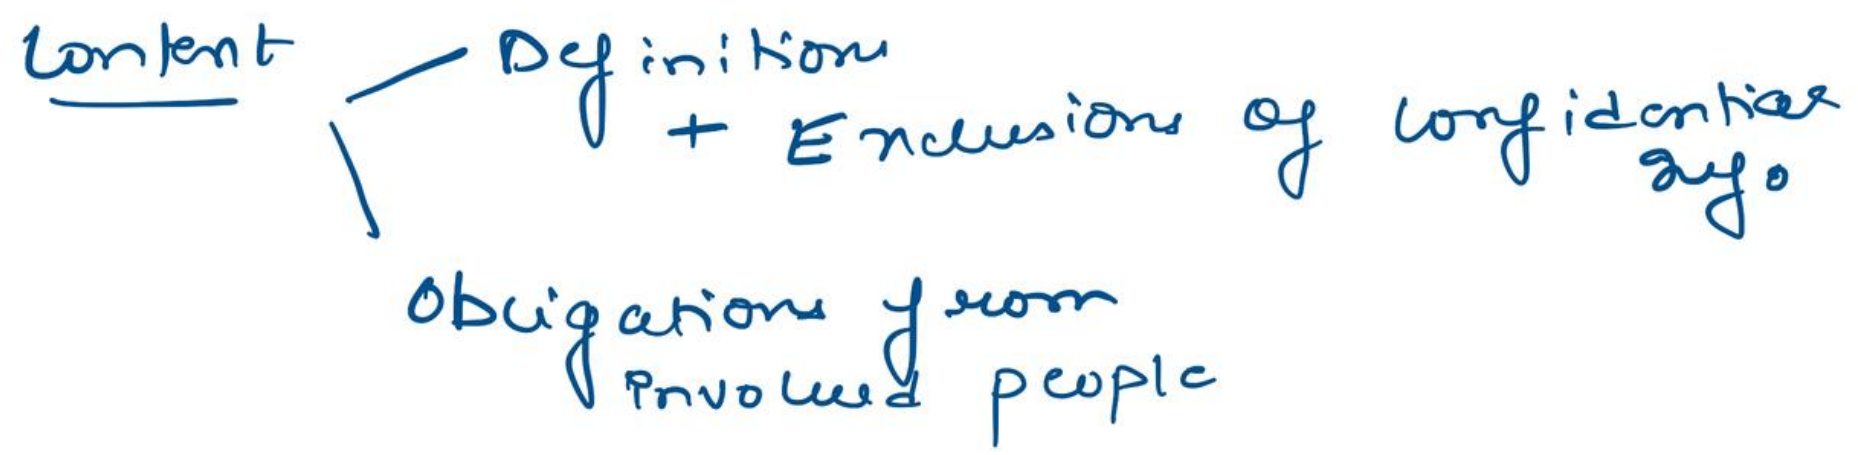 Content
Definitions
+ Exclusions of confidential
Info
Obligations from
involved people